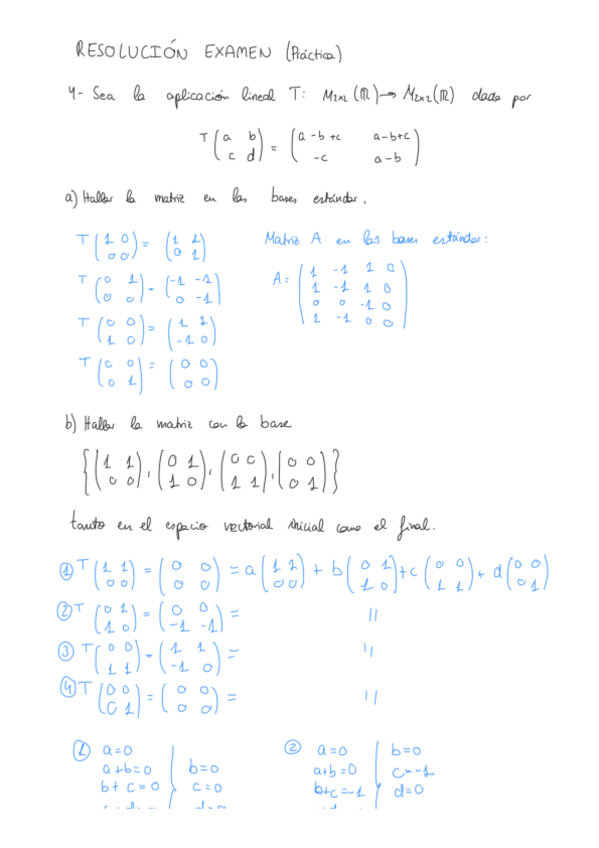 RESOLUCIÓN EXAMEN (Práctica)
4- Sea la aplicación lineal T: M2x2(ℝ)→M2x2(ℝ) dada por
T(a b; c d) = (a-b+c a-b+c; -c a-b)
a) Hallar la matriz en las bases estándar.
T(1 0; 0 0) = (1 1; 0 1)
Matriz A en las bases estándar:
T(0 1; 0 0) = (-1 -1; 0 -1)
A = (1 -1 1 0; 1 -1 1 0; 0 0 -1 0; 1 -1 0 0)
T(0 0; 1 0) = (1 1; -1 0)
T(0 0; 0 1) = (0 0; 0 0)
b) Hallar la matriz con la base
{(1 1; 0 0), (0 1; 1 0), (0 0; 1 1), (0 0; 0 1)}
tanto en el espacio vectorial inicial como el final.
① T(1 1; 0 0) = (0 0; 0 0) = a(1 1; 0 0) + b(0 1; 1 0) + c(0 0; 1 1) + d(0 0; 0 1)
② T(0 1; 1 0) = (0 0; -1 -1) = "
③ T(0 0; 1 1) = (1 1; -1 0) = "
④ T(0 0; 0 1) = (0 0; 0 0) = "
① a=0
a+b=0 b=0
b+c=0 c=0
d=0
② a=0 b=0
a+b=0 c=-1
b+c=-1 d=0